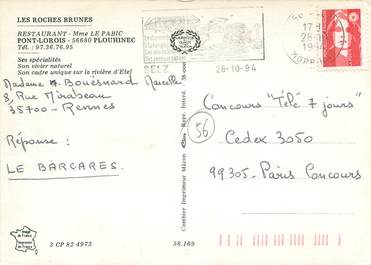 LES ROCHES BRUNES
RESTAURANT - Mme LE PABIC
PONT-LOROIS - 56680 PLOUHINEC
Tél. : 97.36.76.95
Ses spécialités
Son vivier naturel
Son cadre unique sur la rivière d'Etel
BELZ
28-10-94
17 H
Madame M. Bouësnard Marcelle
3, Rue Mirabeau
35700 - Rennes
Réponse :
LE BARCARES.
Concours "Télé 7 jours"
56
Cedex 3050
99305 - Paris Concours
Combier Imprimeur Mâcon
3 CP 82 4973
56.169